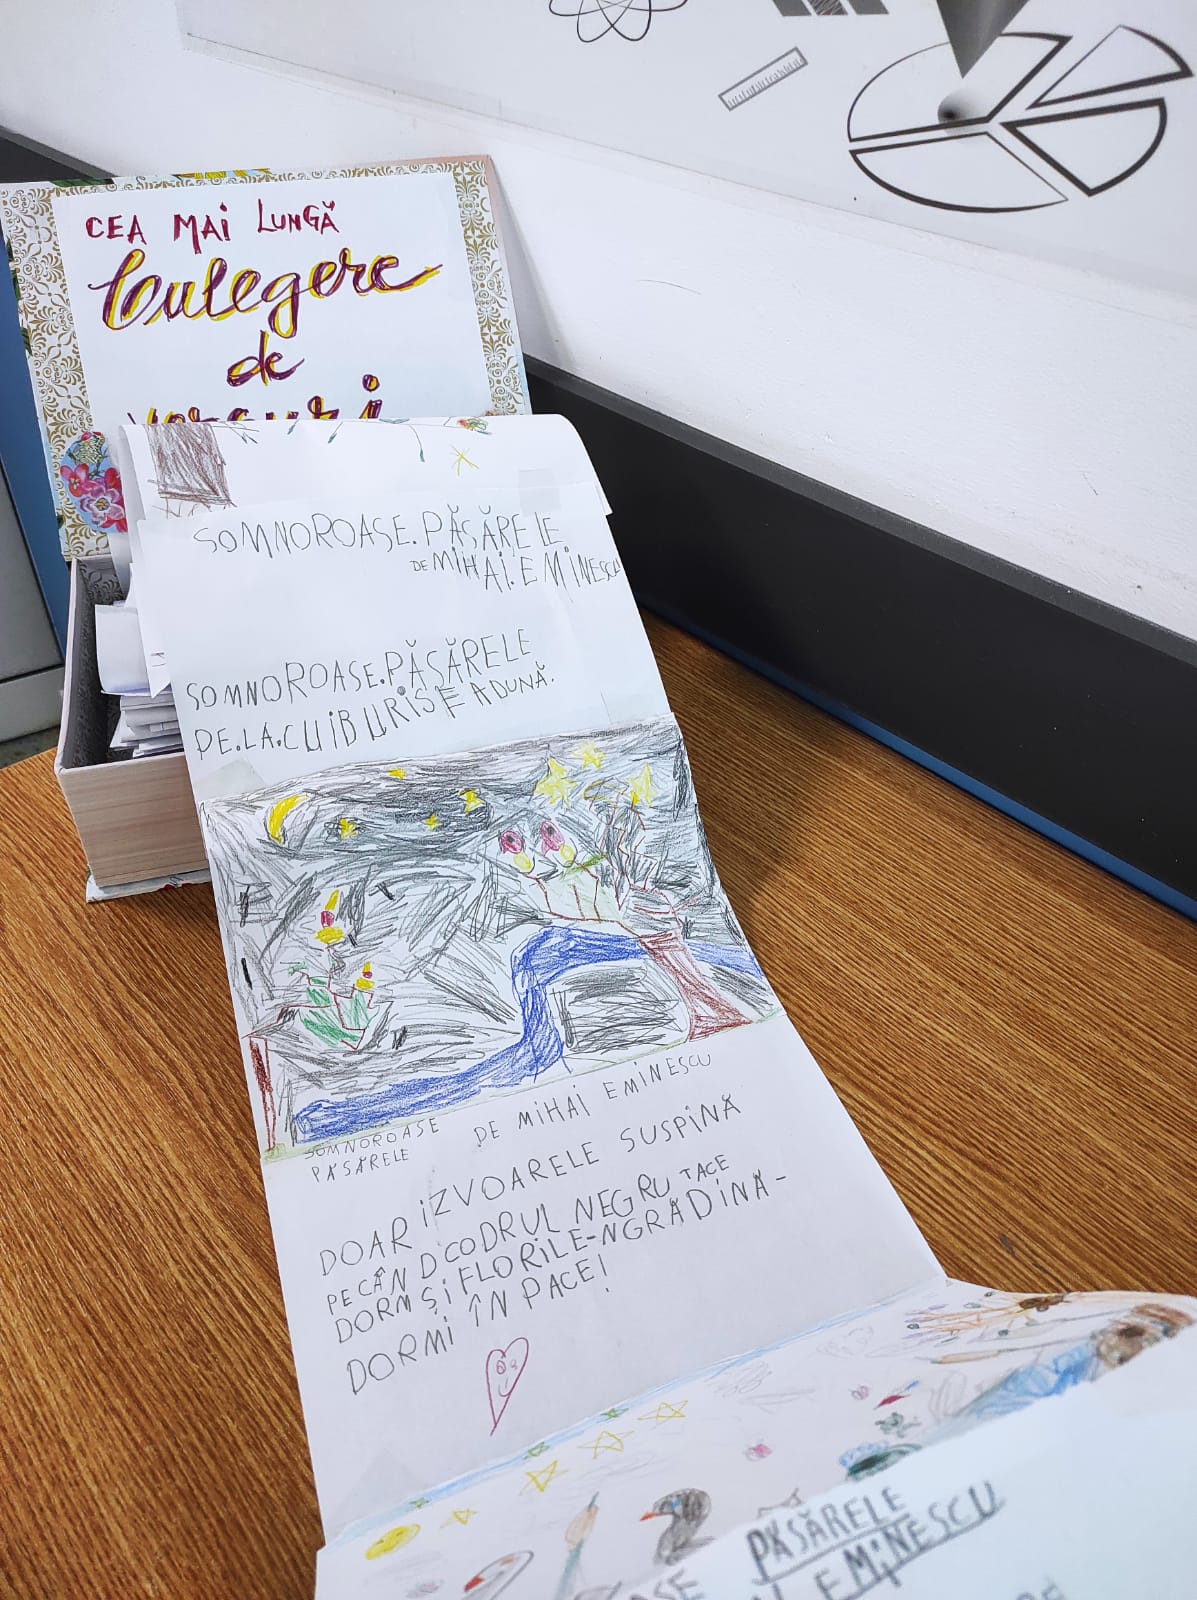 CEA MAI LUNGĂ
Culegere
de
versuri
SOMNOROASE.PĂSĂRELE
DE MIHAI.EMINESCU
SOMNOROASE.PĂSĂRELE
PE.LA.CUIBURI SE ADUNĂ.
SOMNOROASE DE MIHAI EMINESCU
PĂSĂRELE
DOAR IZVOARELE SUSPINĂ
PE CÂND CODRUL NEGRU TACE
DORM ȘI FLORILE-NGRĂDINĂ-
DORMI ÎN PACE!
PĂSĂRELE
EMINESCU